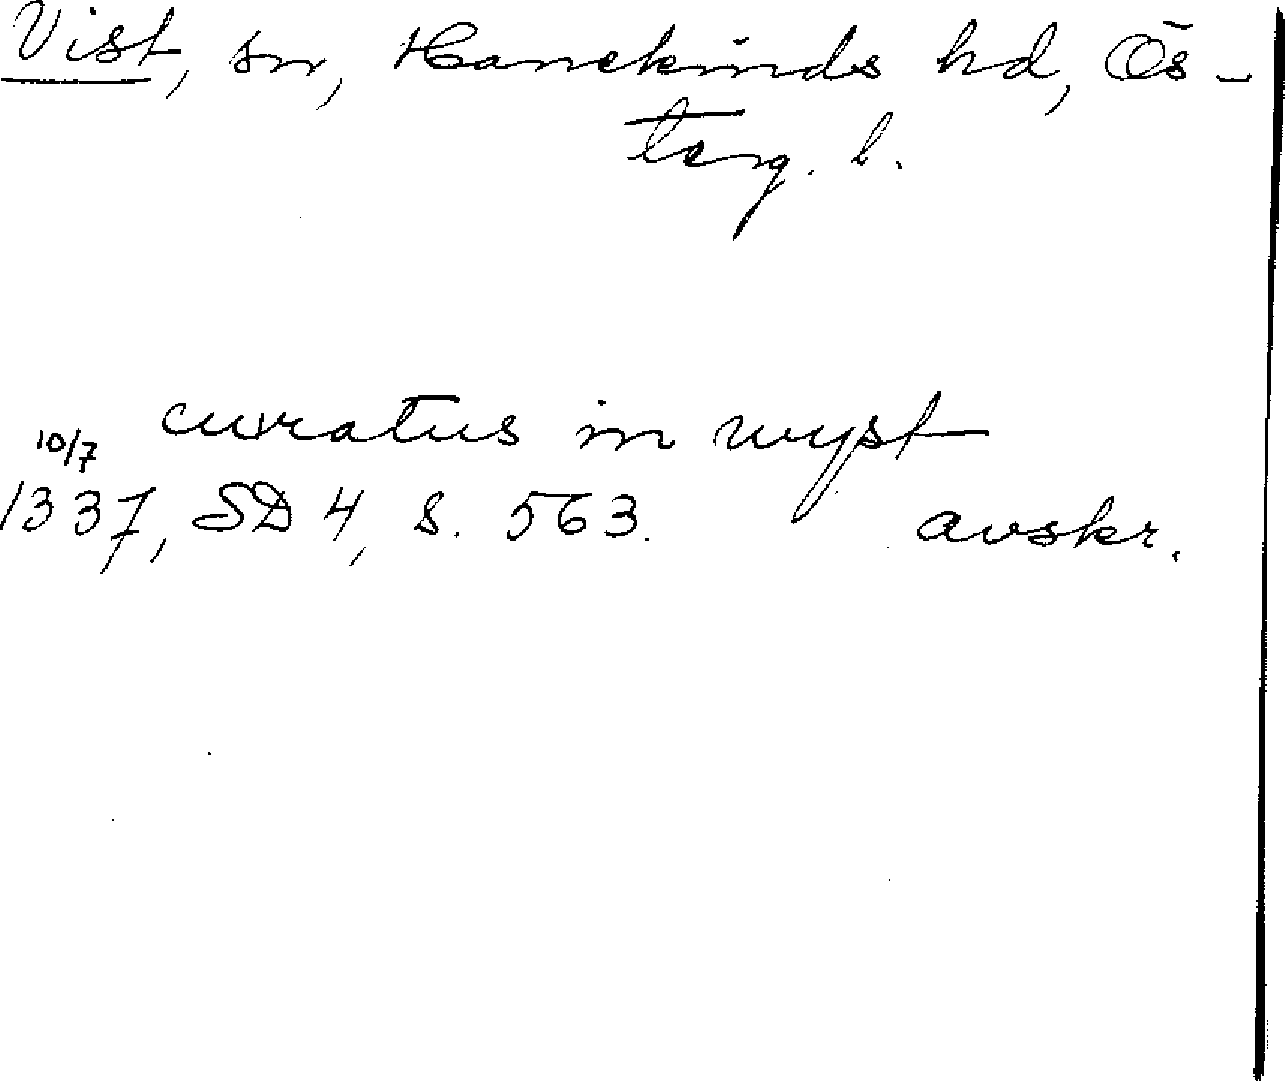 Vist, sn, Hanekinds hd, Ös-
terg. l.
curatus in wyst
10/7
1337, SD 4, s. 563. avskr.